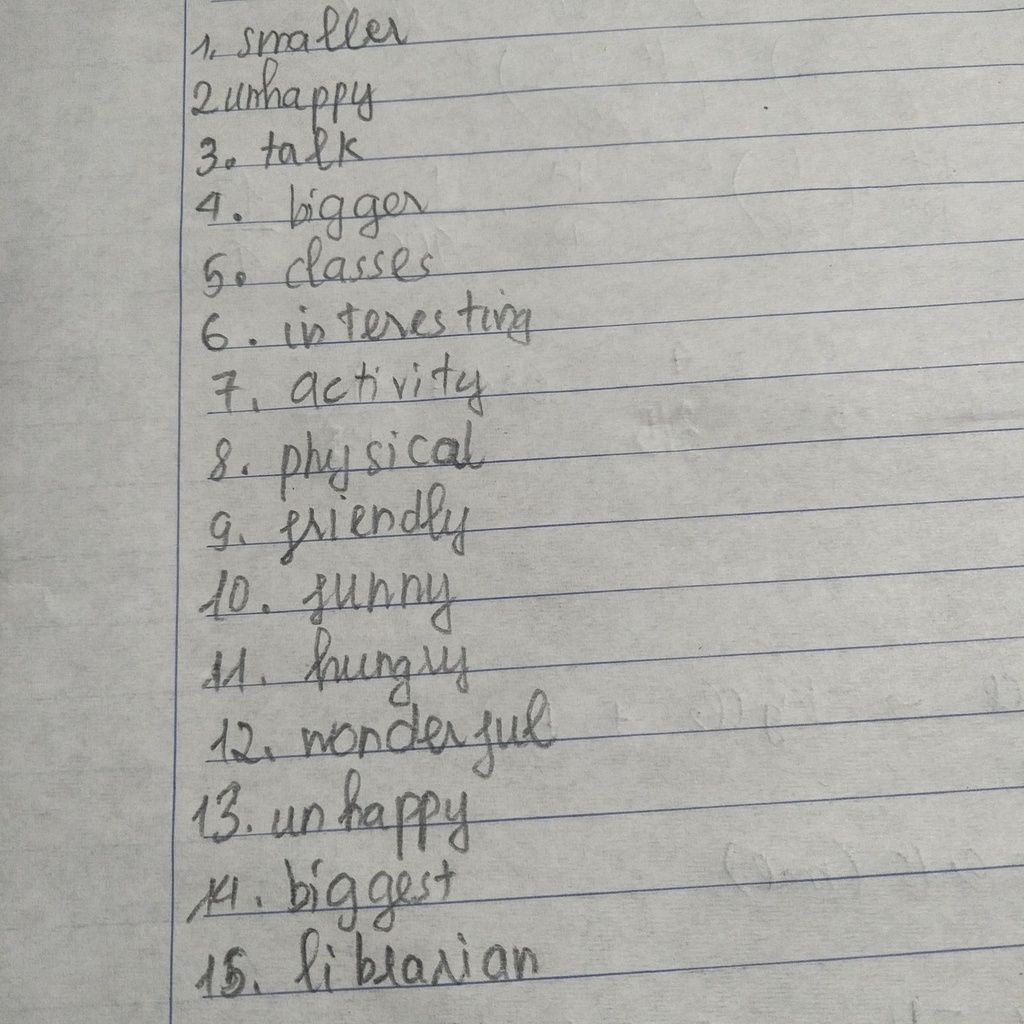 1. smaller
2 unhappy
3. talk
4. bigger
5. classes
6. interesting
7. activity
8. physical
9. friendly
10. funny
11. hungry
12. wonderful
13. unhappy
14. biggest
15. librarian